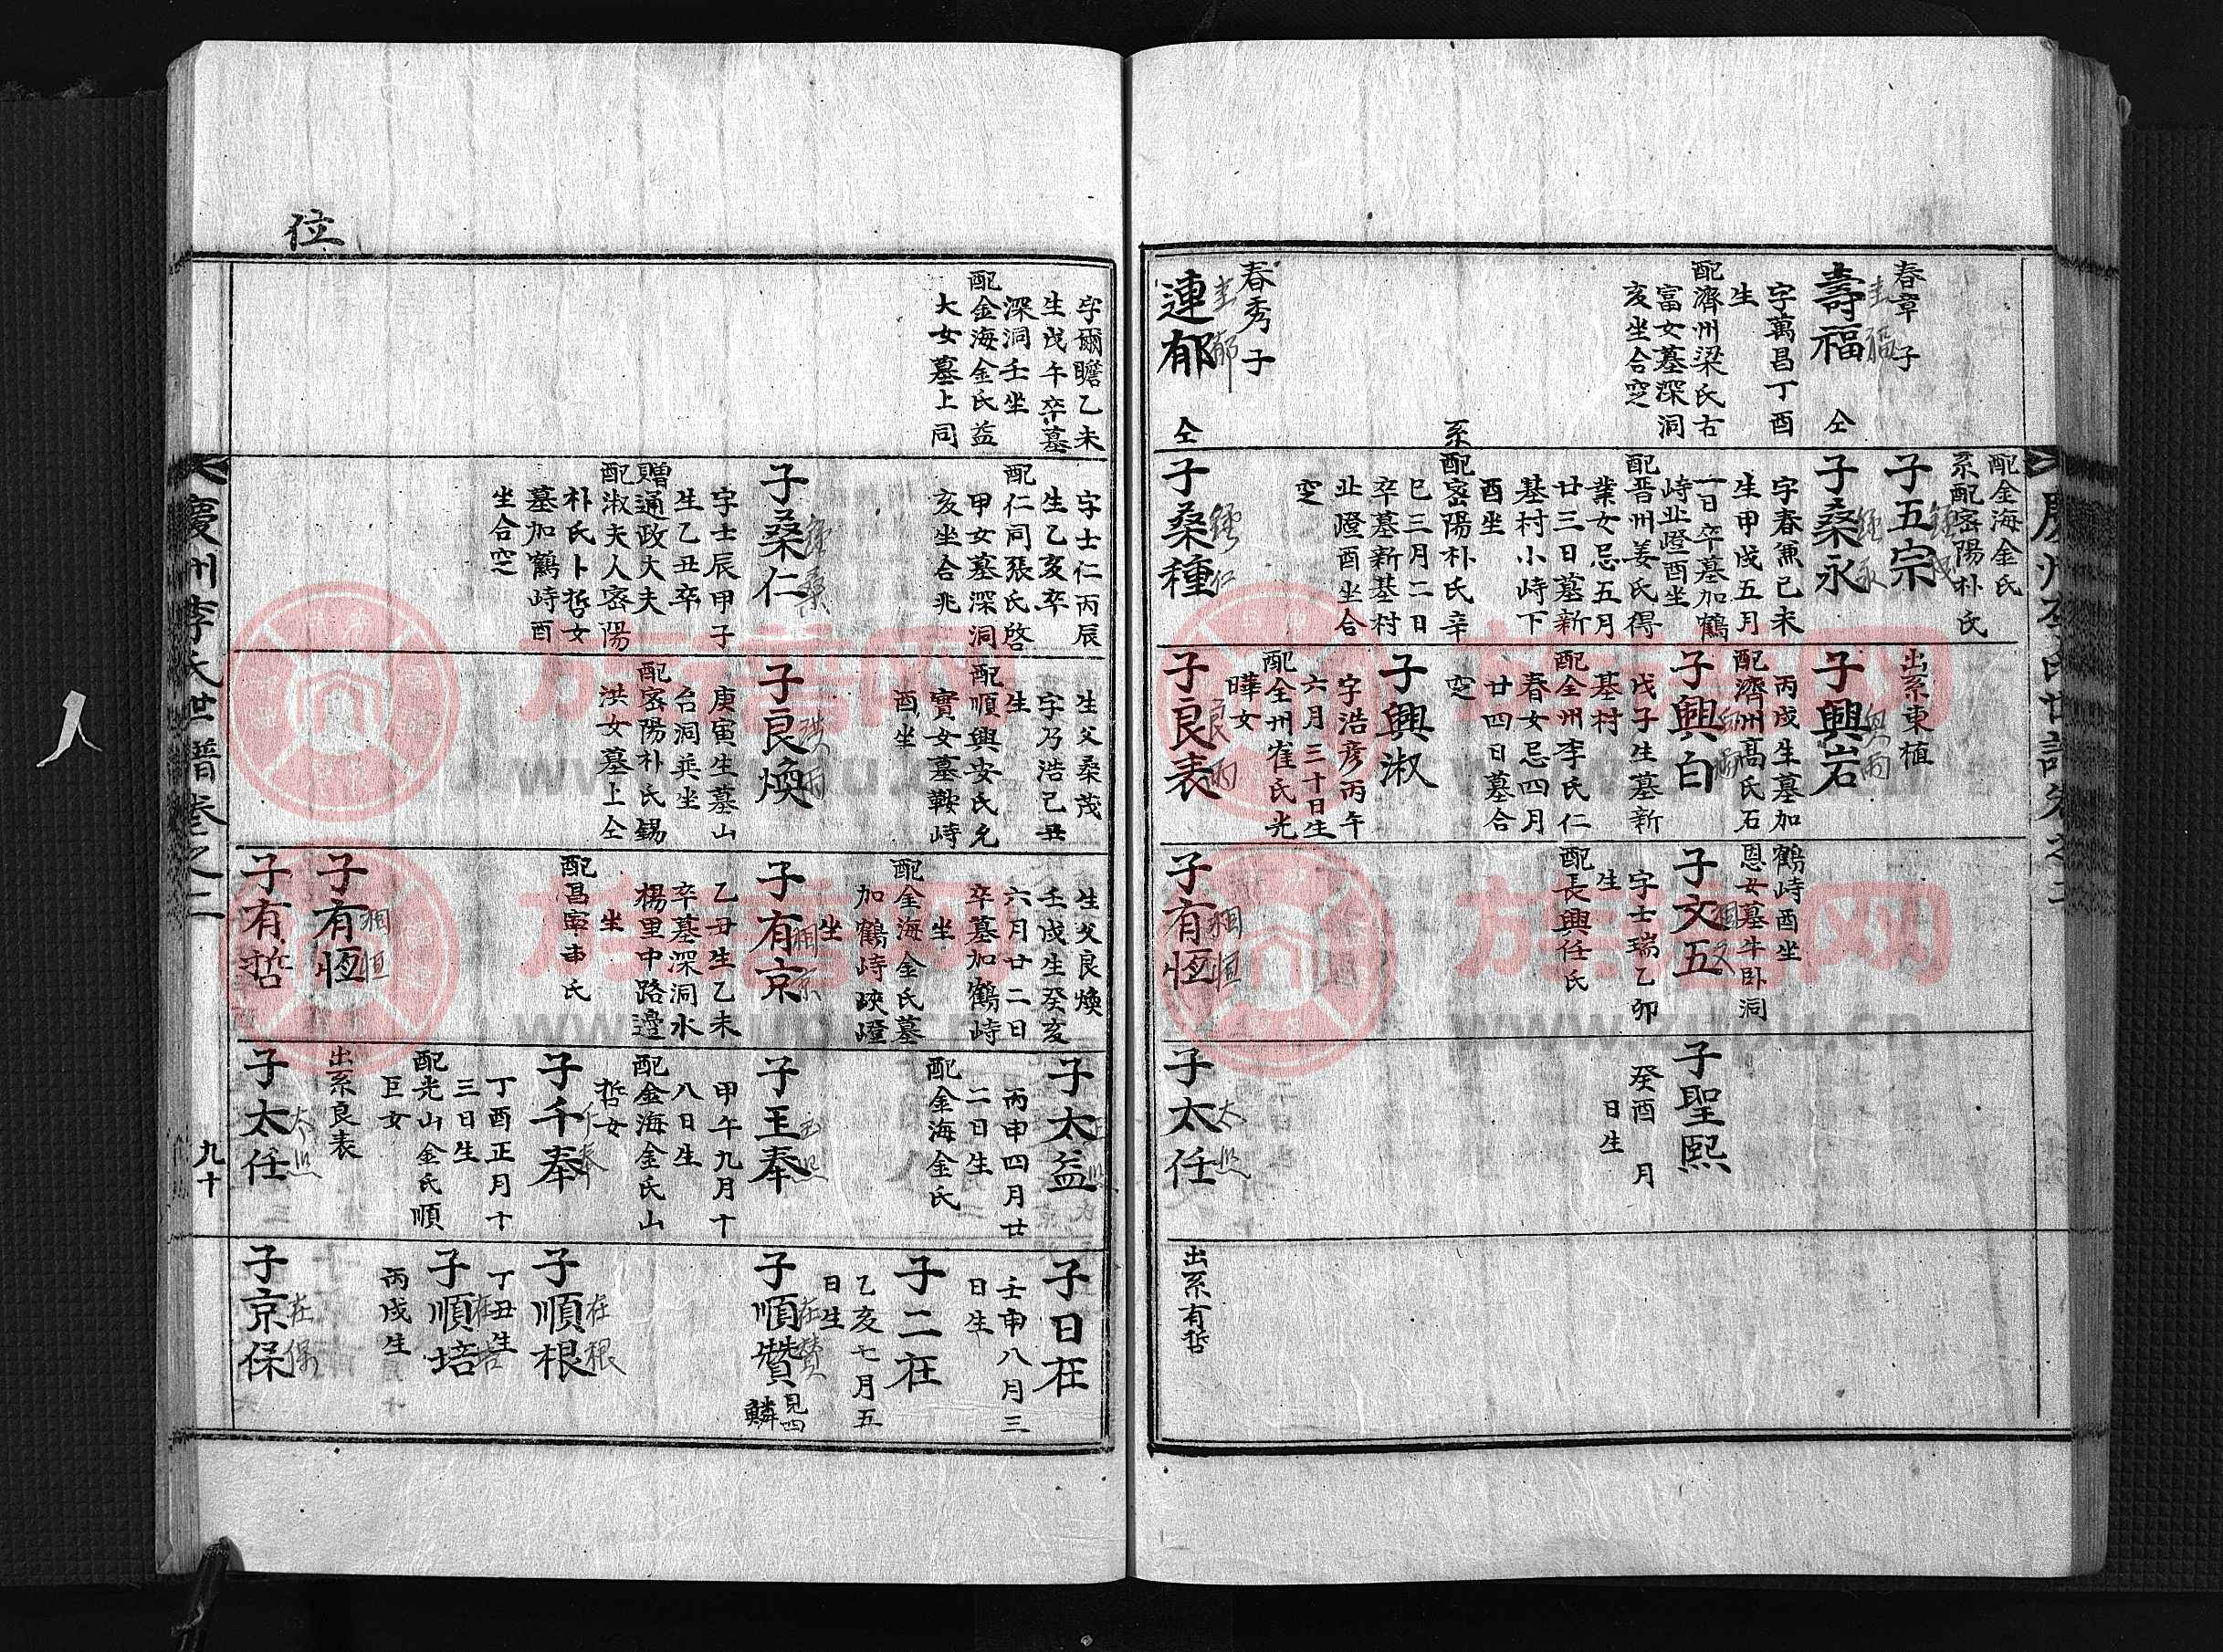 慶州李氏世譜卷之二
春章子
壽福
仝
字萬昌丁酉
生
配濟州梁氏右
富女墓深洞
亥坐合窆
春秀子
連郁
仝
配金海金氏
系配密陽朴氏
子五宗
子桑永
字春兼己未
生甲戌五月
一日卒墓加鶴
峙北嶝酉坐
配晋州姜氏得
業女忌五月
廿三日墓新
基村小峙下
酉坐
系配密陽朴氏辛
巳三月二日
卒墓新基村
北嶝酉坐合
窆
子桑種
出系東植
子興岩
丙戌生墓加
鶴峙酉坐
配濟州高氏石
恩女墓牛卧洞
子興白
戊子生墓新
基村
配全州李氏仁
春女忌四月
廿四日墓合
窆
子興淑
字浩彦丙午
六月三十日生
配全州崔氏光
曄女
子良表
子文五
字士瑞乙卯
生
配長興任氏
子有恆
子聖熙
癸酉 月
日生
子太任
出系有哲
位
字爾瞻乙未
生戊午卒墓
深洞壬坐
配金海金氏益
大女墓上同
字士仁丙辰
生乙亥卒
配仁同張氏啓
甲女墓深洞
亥坐合兆
子桑仁
字士辰甲子
生乙丑卒
贈通政大夫
配淑夫人密陽
朴氏卜哲女
墓加鶴峙酉
坐合窆
生父桑茂
字乃浩己丑
生
配順興安氏允
實女墓鞍峙
酉坐
子良煥
庚寅生墓山
台洞癸坐
配密陽朴氏錫
洪女墓上仝
生父良煥
壬戌生癸亥
六月廿二日
卒墓加鶴峙
坐
配金海金氏墓
加鶴峙峽嶝
坐
子有京
乙丑生乙未
卒墓深洞水
楊里中路邉
坐
配昌寧申氏
子有恆
子有哲
子太益
丙申四月廿
二日生
配金海金氏
子王奉
甲午九月十
八日生
配金海金氏山
哲女
子千奉
丁酉正月十
三日生
配光山金氏順
巨女
出系良表
子太任
子日在
壬申八月三
日生
子二在
乙亥七月五
日生
子順贊
見四
鱗
子順根
丁丑生
子順培
丙戌生
子京保
慶州李氏世譜卷之二
九十